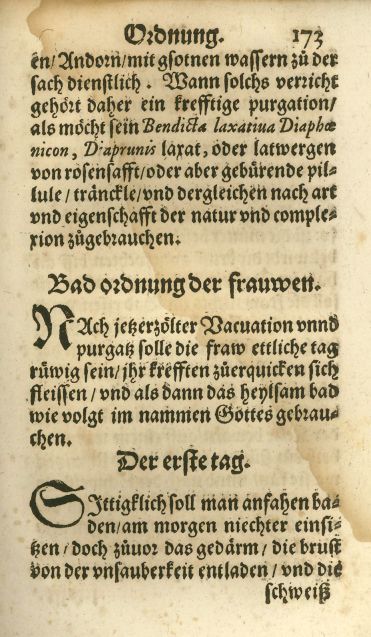 Ordnung. 173
en/Andorn/mit gsotnen wassern zů der
sach dienstlich. Wann solchs verricht
gehört daher ein krefftige purgation/
als möcht sein Bendicta laxatiua Diaphœ
nicon, Diaprunis laxat, oder latwergen
von rosensafft/oder aber gebürende pil⸗
lule/tränckle/vnd dergleichen nach art
vnd eigenschafft der natur vnd comple⸗
xion zůgebrauchen.
Bad ordnung der frauwen.
NAch jetzerzölter Vacuation vnnd
purgatz solle die fraw ettliche tag
růwig sein/jhr krefften zůerquicken sich
fleissen/vnd als dann das heylsam bad
wie volgt im nammen Gottes gebrau⸗
chen.
Der erste tag.
SIttigklich soll man anfahen ba⸗
den/am morgen niechter einsi⸗
tzen/doch zůuor das gedärm/die brust
von der vnsauberkeit entladen/vnd die
schweiß